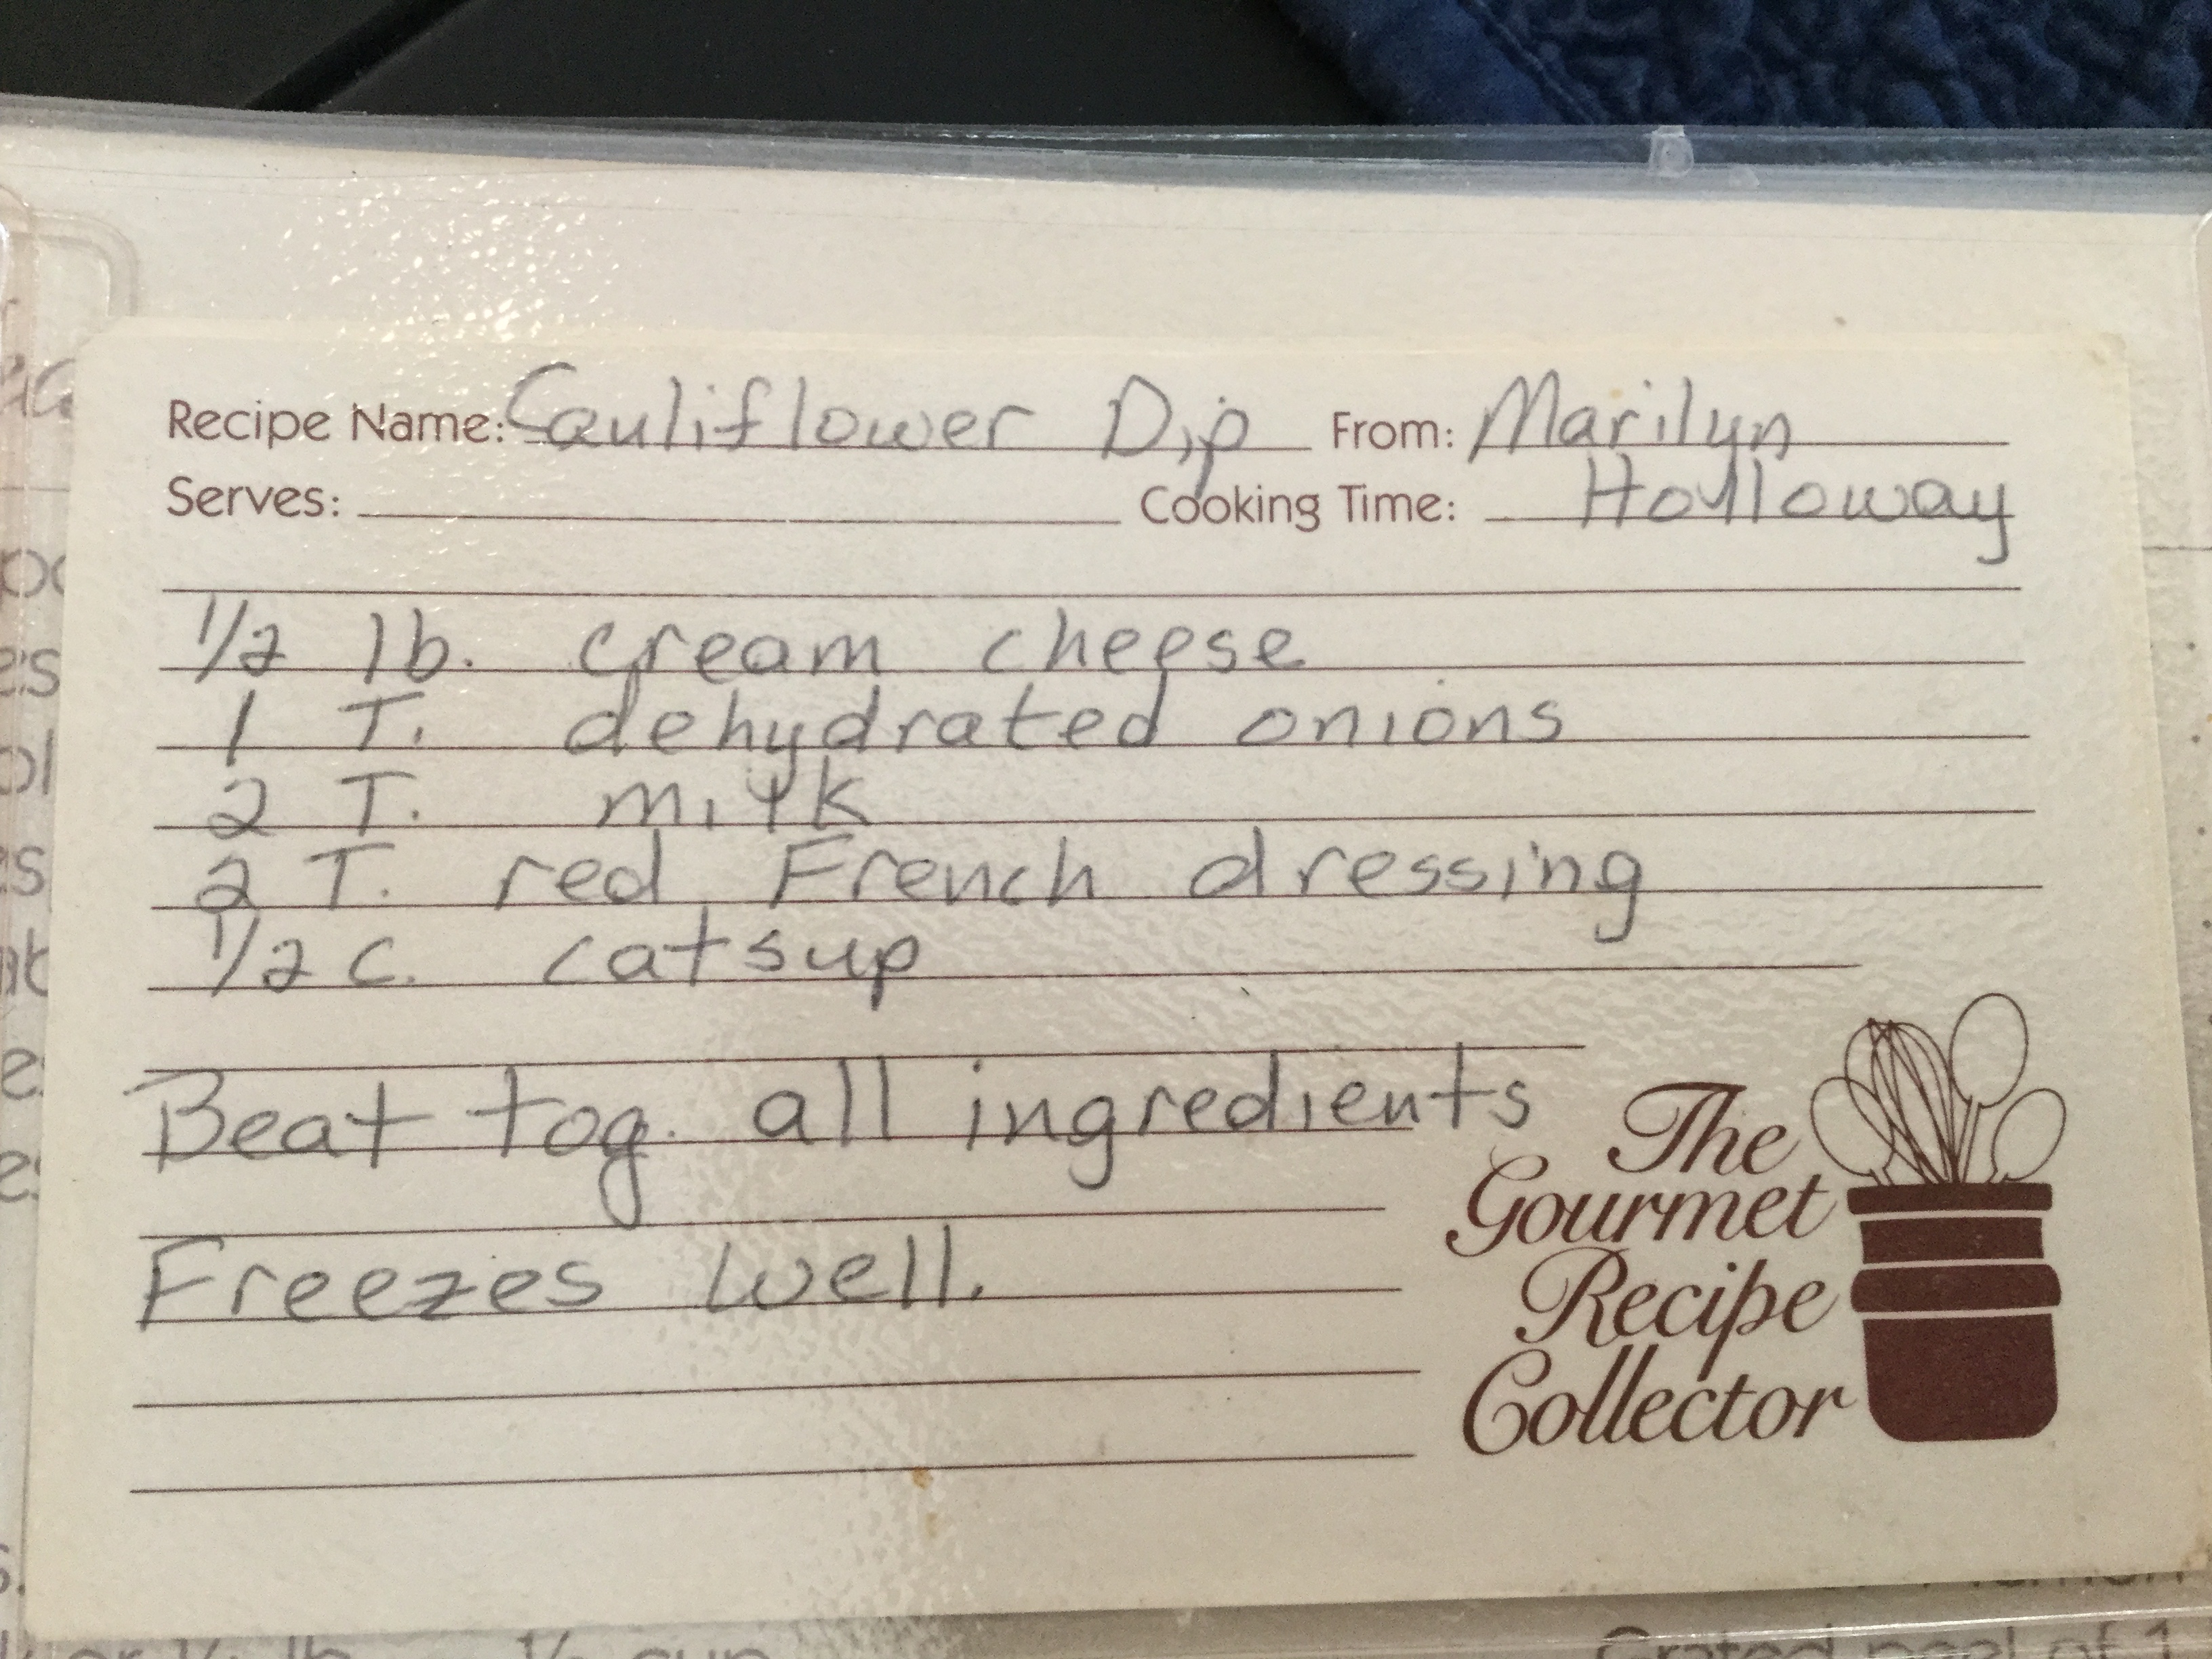 Recipe Name: Cauliflower Dip From: Marilyn
Serves: Cooking Time: Holloway
1/2 lb. cream cheese
1 T. dehydrated onions
2 T. milk
2 T. red French dressing
1/2 c. catsup
Beat tog. all ingredients
Freezes well.
The
Gourmet
Recipe
Collector
or 1/2 lb 1/2 cup
Grated peel of 1